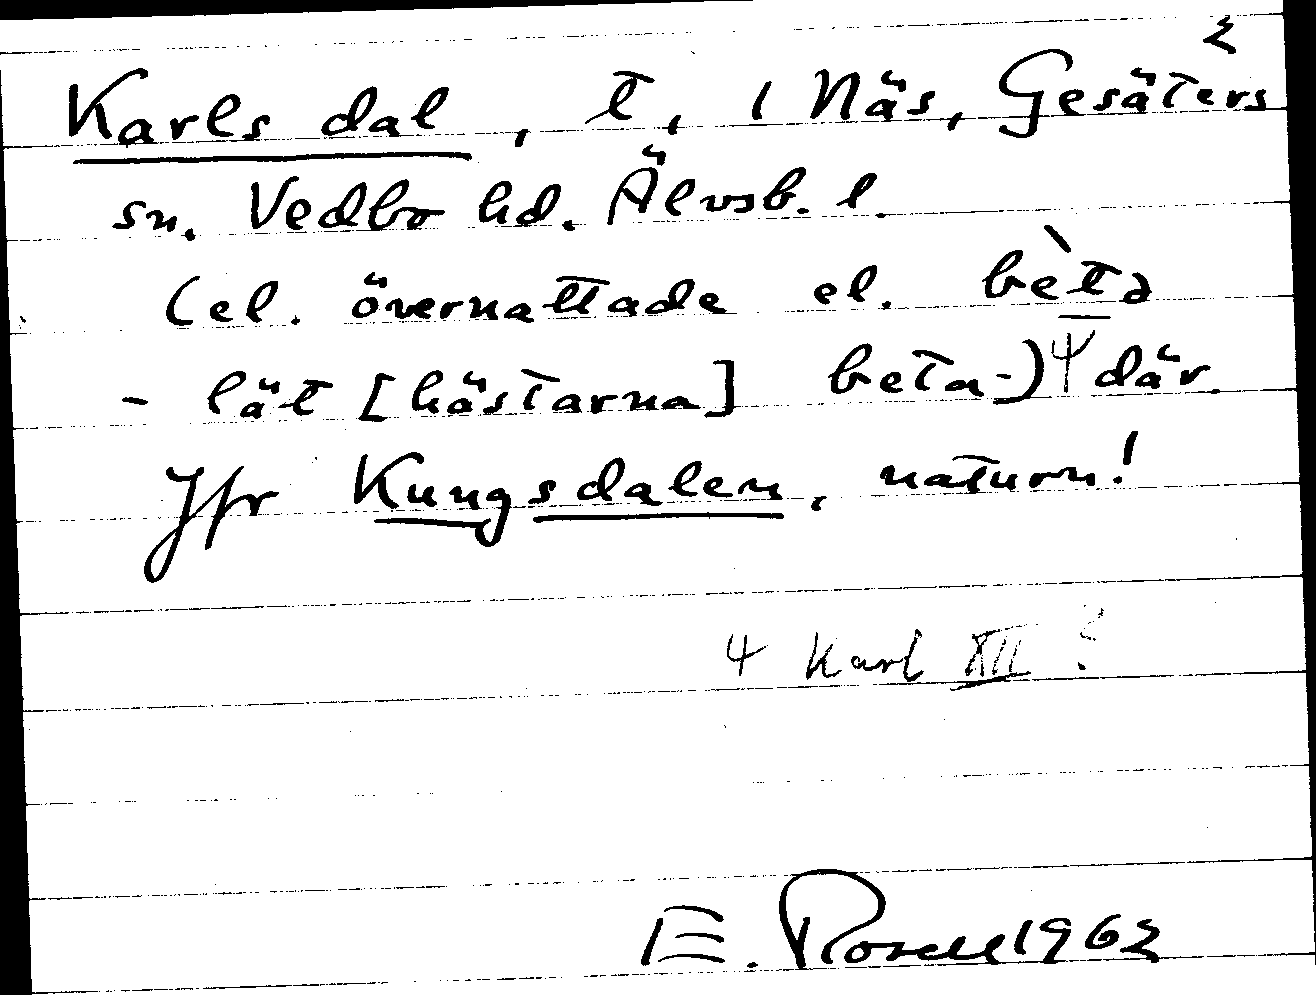 2
Karlsdal, t, 1 Näs, Gesäters
sn. Vedbo hd. Älvsb. l.
(el. övernattade el. bètə
- lät [hästarna] beta-)ψ där.
Jfr Kungsdalen, naturn!
ψ Karl XII ?
E. Rosell 1962